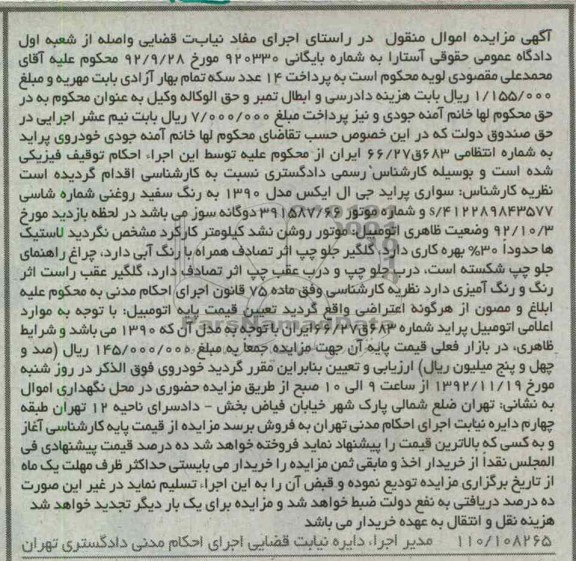 آگهی مزایده اموال منقول در راستای اجرای مفاد نیابت قضایی واصله از شعبه اول
دادگاه عمومی حقوقی آستارا به شماره بایگانی ۹۲۰۳۳۰ مورخ ۹۲/۹/۲۸ محکوم علیه آقای
محمدعلی مقصودی لویه محکوم است به پرداخت ۱۴ عدد سکه تمام بهار آزادی بابت مهریه و مبلغ
۱/۱۵۵/۰۰۰ ریال بابت هزینه دادرسی و ابطال تمبر و حق الوکاله وکیل به عنوان محکوم به در
حق محکوم لها خانم آمنه جودی و نیز پرداخت مبلغ ۷/۰۰۰/۰۰۰ ریال بابت نیم عشر اجرایی در
حق صندوق دولت که در این خصوص حسب تقاضای محکوم لها خانم آمنه جودی خودروی پراید
به شماره انتظامی ۶۸۳ق۶۶/۲۷ ایران از محکوم علیه توسط این اجرا، احکام توقیف فیزیکی
شده است و بوسیله کارشناس رسمی دادگستری نسبت به کارشناسی اقدام گردیده است
نظریه کارشناس: سواری پراید جی ال ایکس مدل ۱۳۹۰ به رنگ سفید روغنی شماره شاسی
s/۴۱۲۲۸۹۸۴۳۵۷۷ و شماره موتور ۳۹۱۵۸۷/۶۶ دوگانه سوز می باشد در لحظه بازدید مورخ
۹۲/۱۰/۳ وضعیت ظاهری اتومبیل: موتور روشن نشد کیلومتر کارکرد مشخص نگردید لاستیک
ها حدوداً ۳۰% بهره کاری دارد، گلگیر جلو چپ اثر تصادف همراه با رنگ آبی دارد، چراغ راهنمای
جلو چپ شکسته است، درب جلو چپ و درب عقب چپ اثر تصادف دارد، گلگیر عقب راست اثر
رنگ و رنگ آمیزی دارد نظریه کارشناسی وفق ماده ۷۵ قانون اجرای احکام مدنی به محکوم علیه
ابلاغ و مصون از هرگونه اعتراضی واقع گردید تعیین قیمت پایه اتومبیل: با توجه به موارد
اعلامی اتومبیل پراید شماره ۶۸۳ق۶۶/۲۷ایران با توجه به مدل آن که ۱۳۹۰ می باشد و شرایط
ظاهری، در بازار فعلی قیمت پایه آن جهت مزایده جمعا به مبلغ ۱۴۵/۰۰۰/۰۰۰ ریال (صد و
چهل و پنج میلیون ریال) ارزیابی و تعیین بنابراین مقرر گردید خودروی فوق الذکر در روز شنبه
مورخ ۱۳۹۲/۱۱/۱۹ از ساعت ۹ الی ۱۰ صبح از طریق مزایده حضوری در محل نگهداری اموال
به نشانی: تهران ضلع شمالی پارک شهر خیابان فیاض بخش - دادسرای ناحیه ۱۲ تهران طبقه
چهارم دایره نیابت اجرای احکام مدنی تهران به فروش برسد مزایده از قیمت پایه کارشناسی آغاز
و به کسی که بالاترین قیمت را پیشنهاد نماید فروخته خواهد شد ده درصد قیمت پیشنهادی فی
المجلس نقداً از خریدار اخذ و مابقی ثمن مزایده را خریدار می بایستی حداکثر ظرف مهلت یک ماه
از تاریخ برگزاری مزایده تودیع نموده و قبض آن را به این اجراء تسلیم نماید در غیر این صورت
ده درصد دریافتی به نفع دولت ضبط خواهد شد و مزایده برای یک بار دیگر تجدید خواهد شد
هزینه نقل و انتقال به عهده خریدار می باشد
۱۱۰/۱۰۸۲۶۵ مدیر اجرا، دایره نیابت قضایی اجرای احکام مدنی دادگستری تهران